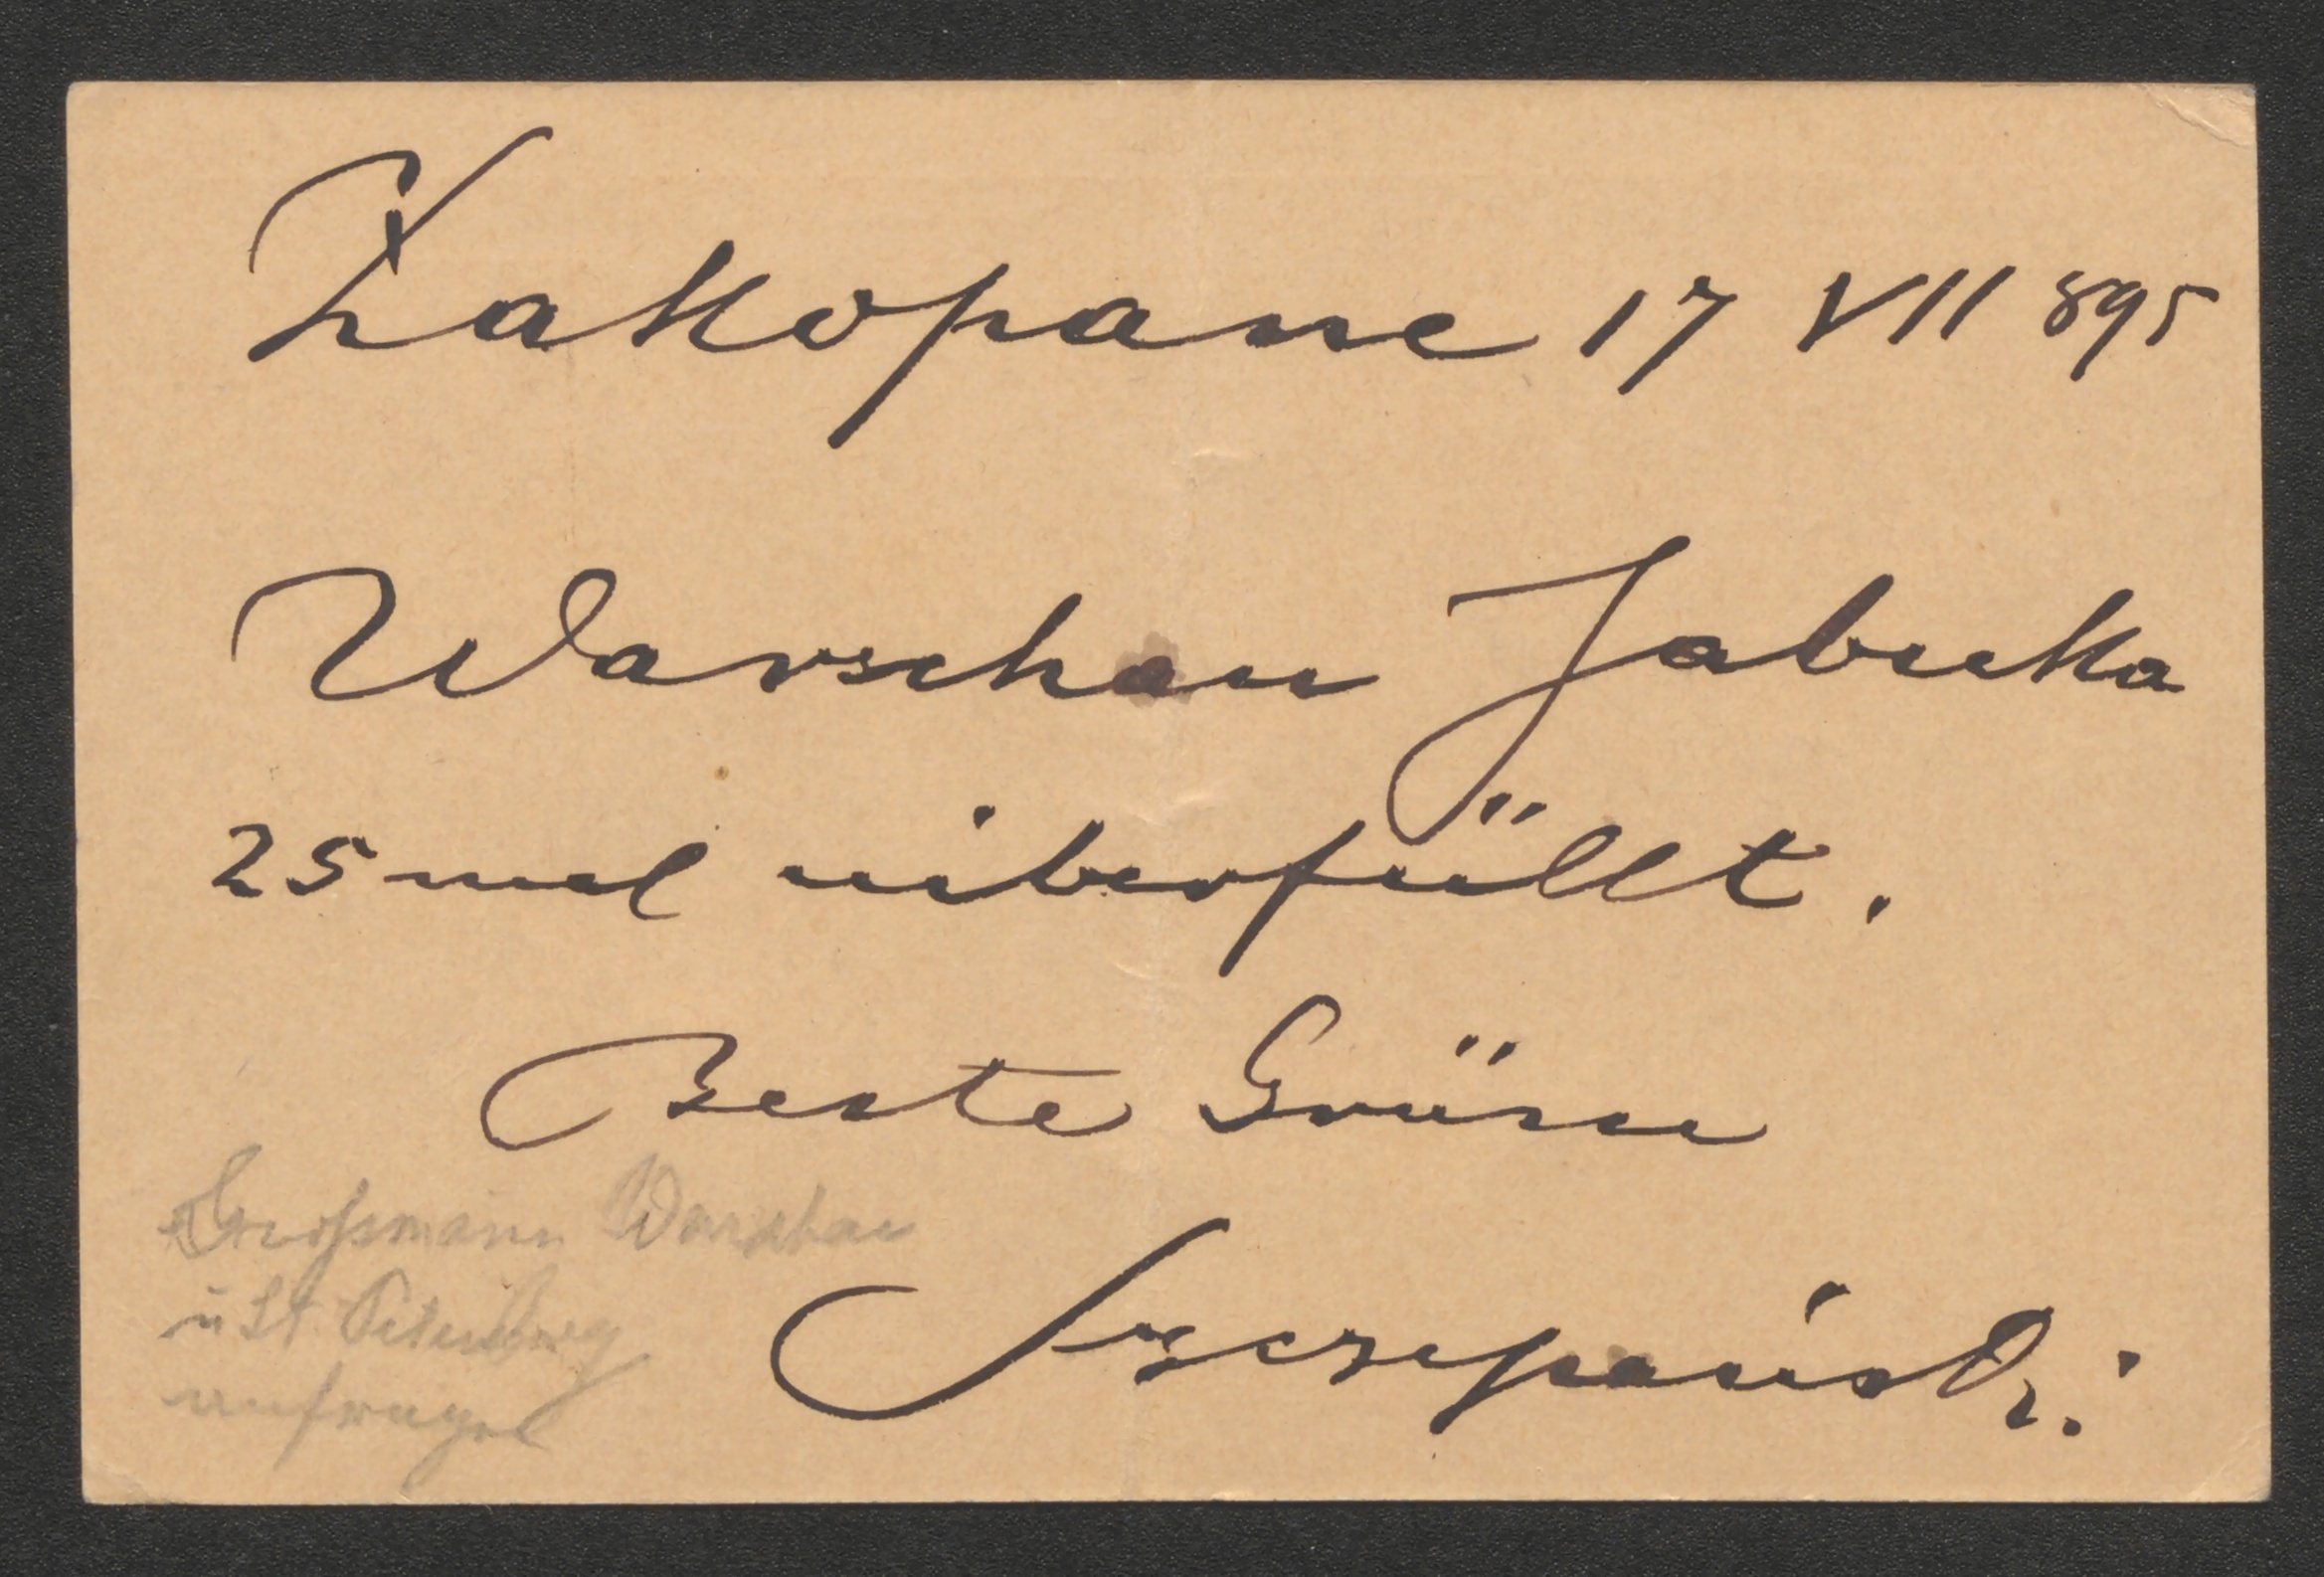 Zakopane 17 VII 895
Warschau Jabuka
25 mal überfüllt.
Beste Grüsse
Szczepański
Grossmann Warschau
u St Petersburg
anfragen